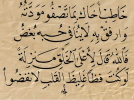 خاطب أخاك بما تصفو مودته
وارفق به لينا في حجة بعض
فالله قال لأعلى الخلق منزلة
لو كنت فظا غليظ القلب لانفضوا